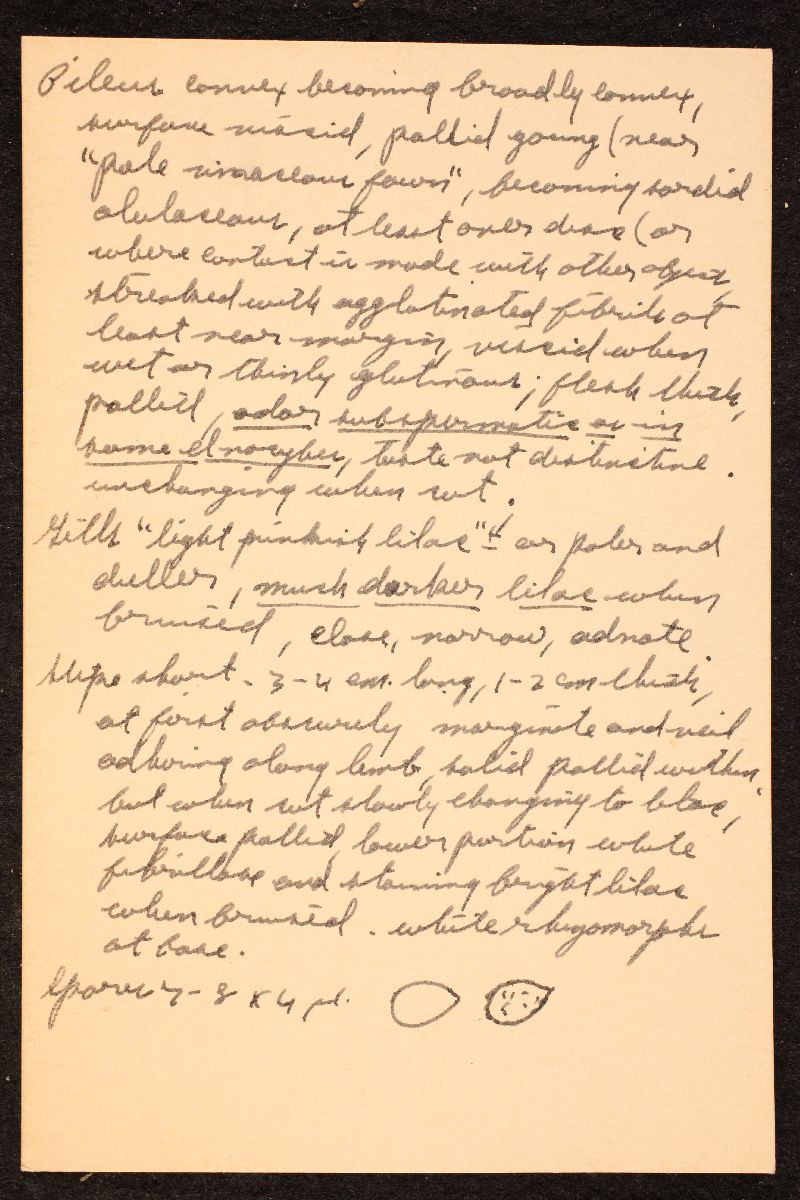 Pileus convex becoming broadly convex,
surface viscid, pallid young (near
"pale vinaceous fawn", becoming sordid
alutaceous, at least over disc (or
where contact is made with other object,
streaked with agglutinated fibrils at
least near margin, viscid when
wet or thinly glutinous; flesh thick,
pallid, odor subspermatic as in
some Inocybes, taste not distinctive.
unchanging when cut.
Gills "light pinkish lilac" ± or paler and
duller, much darker lilac when
bruised, close, narrow, adnate
Stipe short - 3-4 cm. long, 1-2 cm thick,
at first obscurely marginate and veil
adhering along limb, solid pallid within,
but when cut slowly changing to lilac,
surface pallid, lower portion white
fibrillose and staining bright lilac
when bruised. white rhizomorphs
at base.
Spores 7-8 x 4 µ.